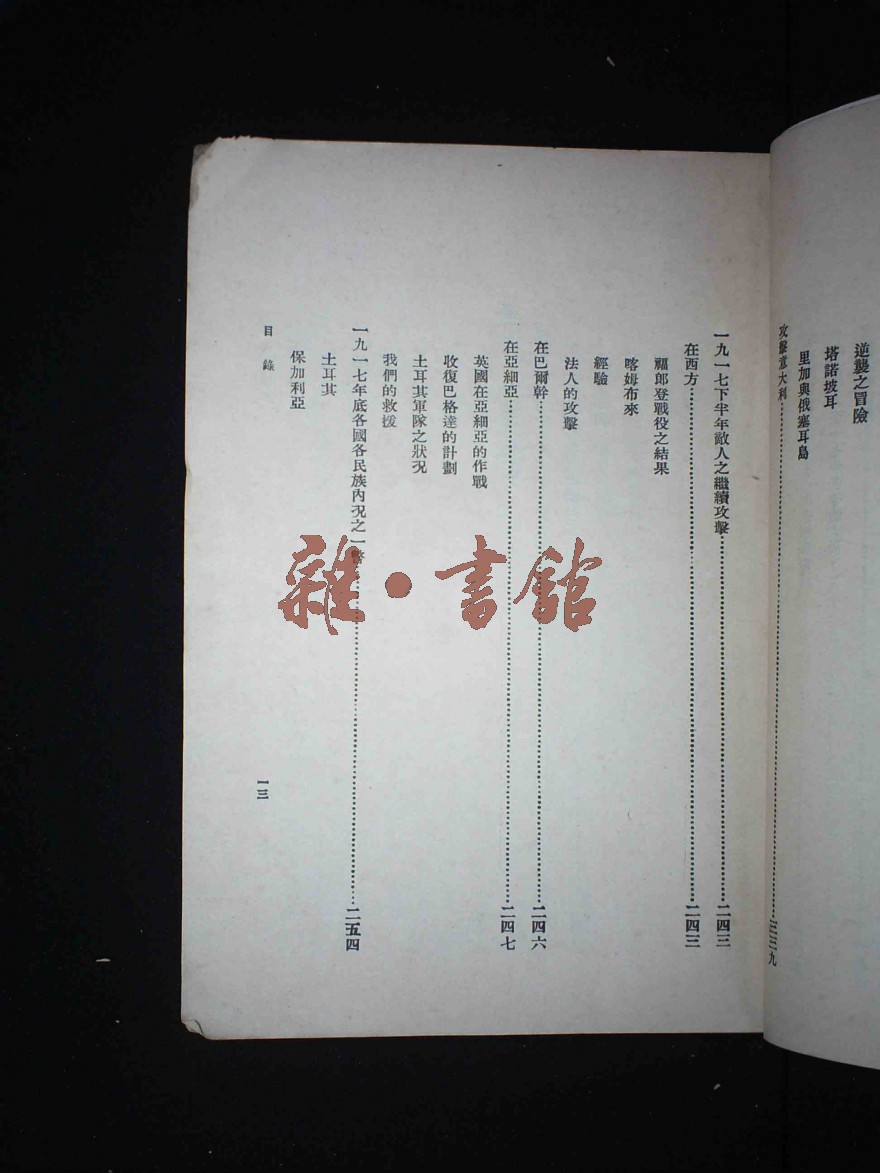 逆襲之冒險
塔諾坡耳
里加與俄塞耳島
攻擊意大利……二三九
一九一七下半年敵人之繼續攻擊……二四三
在西方……二四三
福郎登戰役之結果
喀姆布來
經驗
法人的攻擊
在巴爾幹……二四六
在亞細亞……二四七
英國在亞細亞的作戰
收復巴格達的計劃
土耳其軍隊之狀況
我們的救援
一九一七年底各國各民族內况之一瞥……二五四
土耳其
保加利亞
目錄
一三
雜·書館